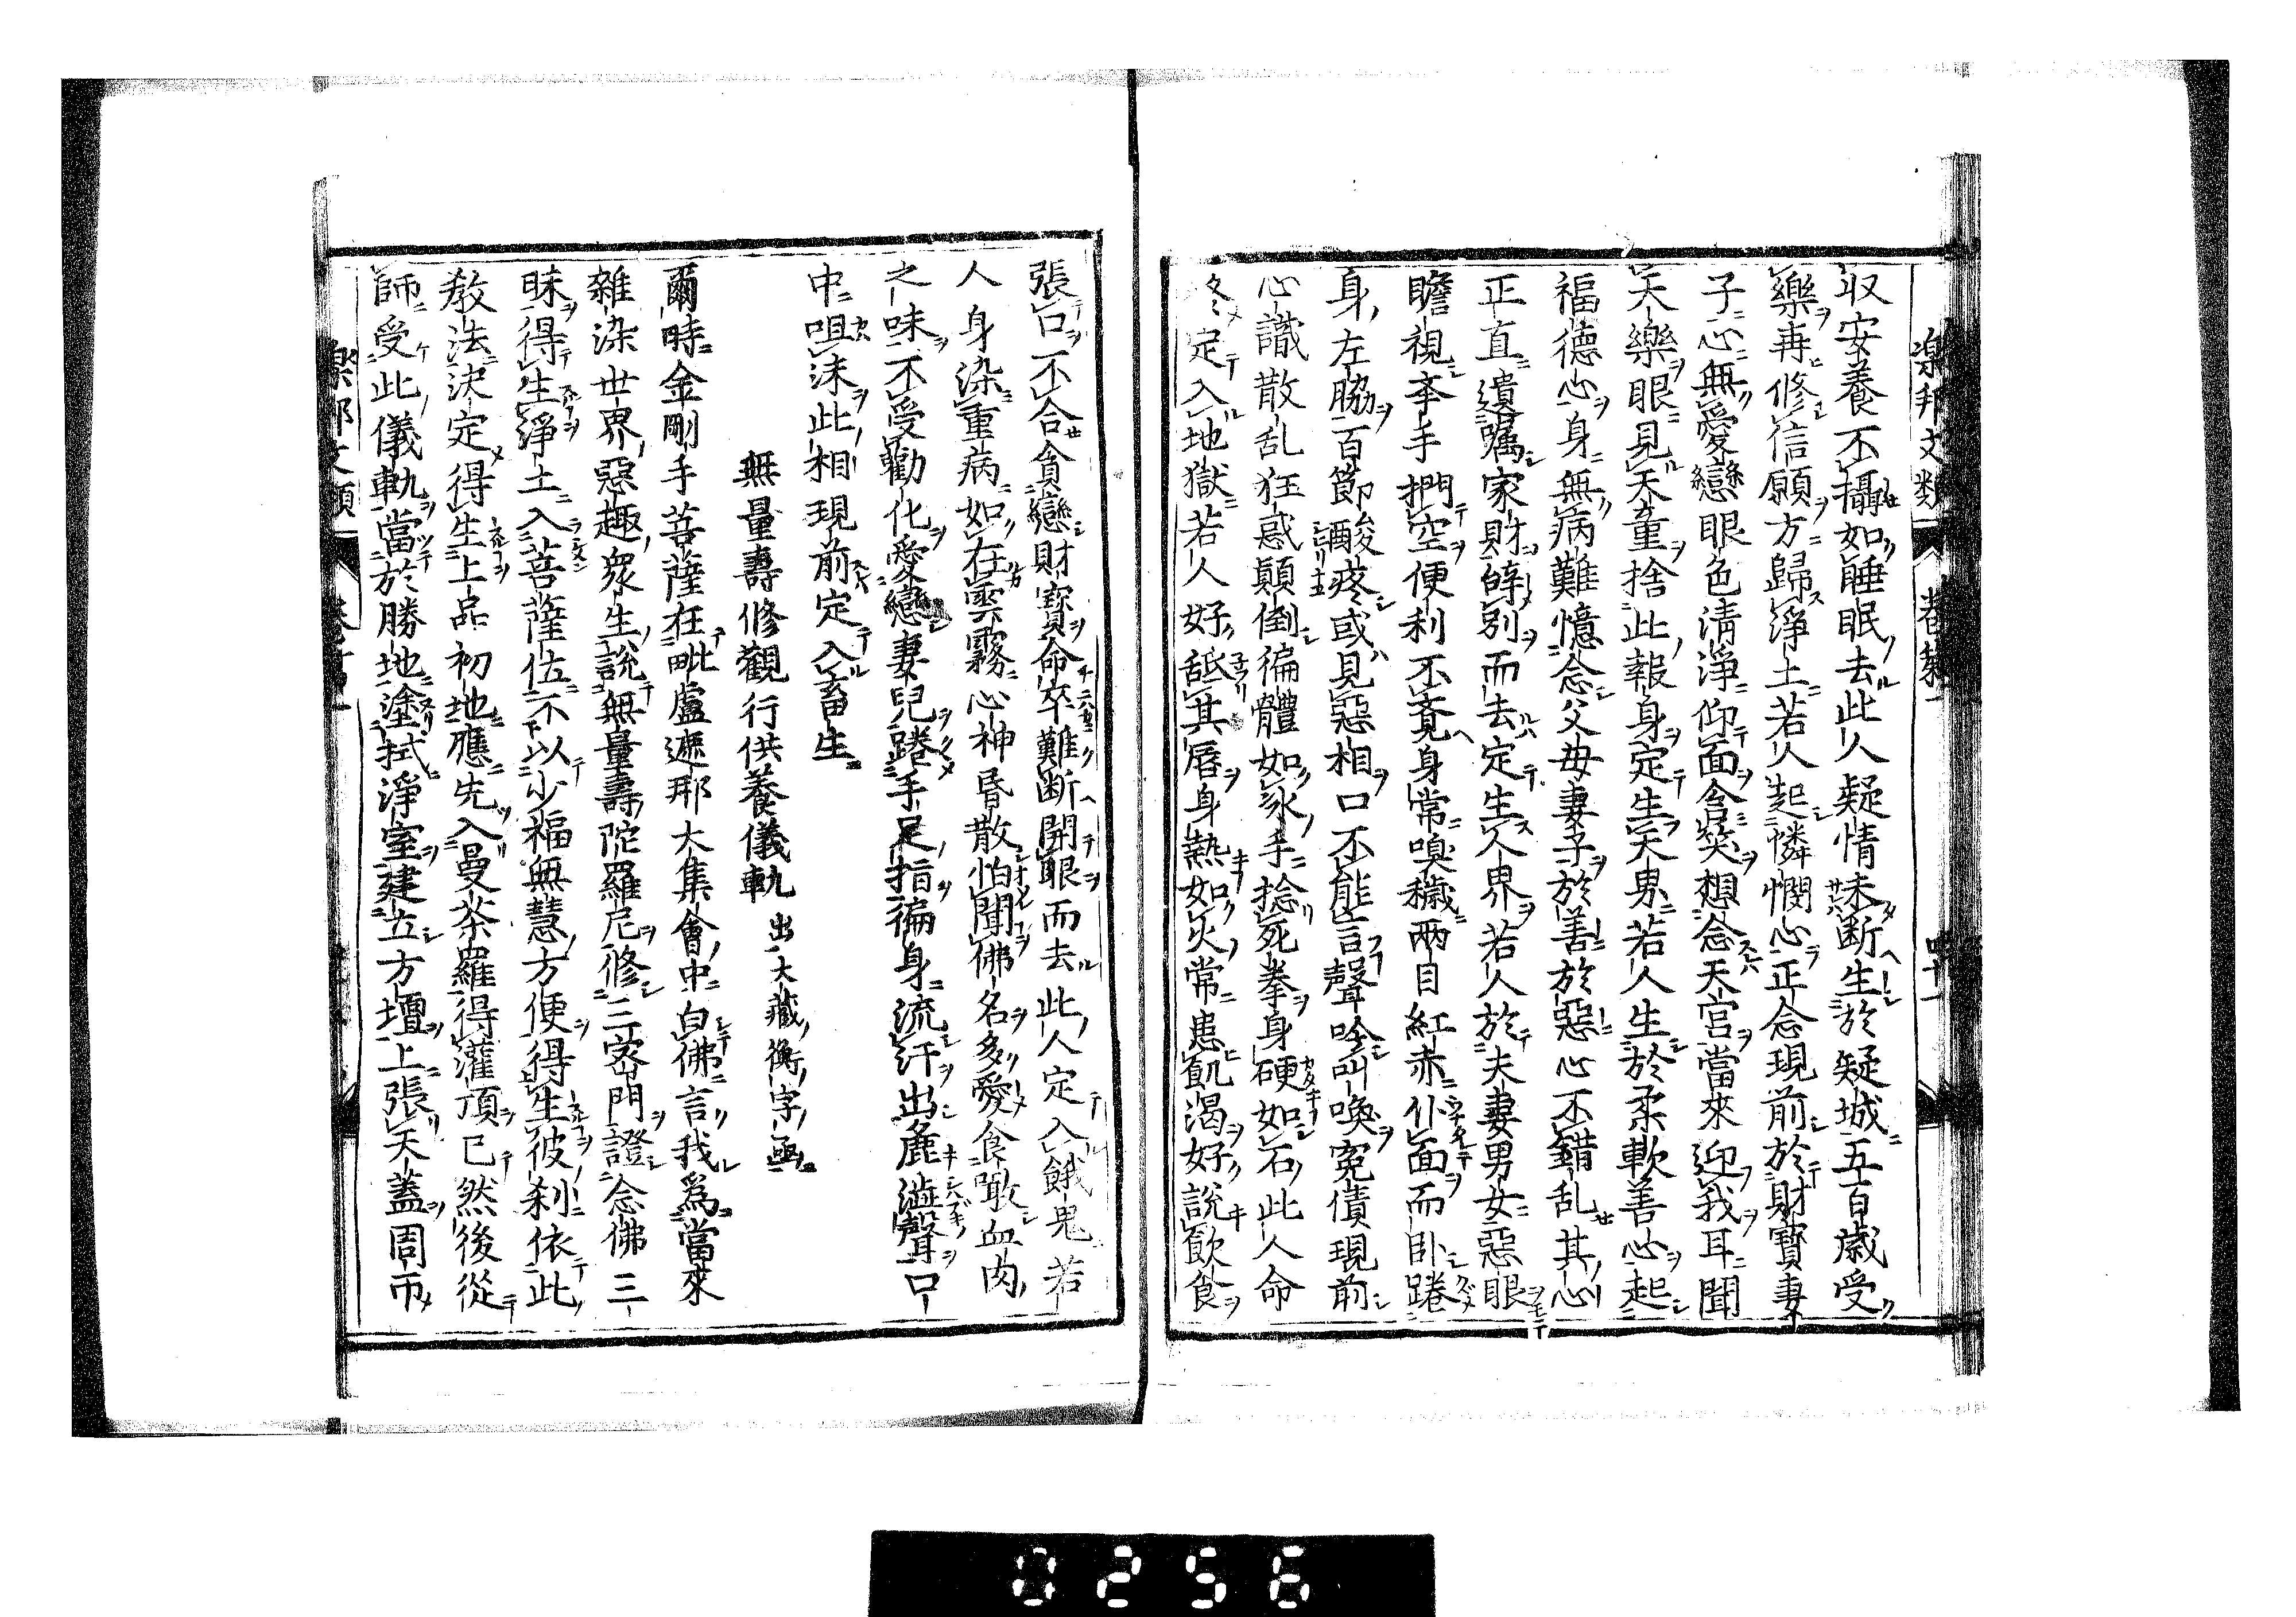 樂邦文類 卷第一
取安養不攝如睡眠去此人疑情未斷生於疑城五百歲受
樂再修信願方歸淨土若人起憐憫心正念現前於財寶妻
子心無愛戀眼色清淨仰面含笑想念天宮當來迎我耳聞
天樂眼見天童捨此報身定生天界若人生於柔軟善心起
福德心身無病難憶念父母妻子於善於惡心不錯乱其心
正直遺囑家財辝別而去定生人界若人於夫妻男女惡眼
瞻視奉手捫空便利不覔身常嗅穢兩目紅赤仆面而卧踡
身左脇百節酸疼或見惡相口不能言聲吟叫喚寃債現前
心識散乱狂惑顛倒徧體如氷手捻死拳身硬如石此人命
終定入地獄若人好舐其唇身熱如火常患飢渴好說飲食
張口不合貪戀財寶命卒難斷開眼而去此人定入餓鬼若
人身染重病如在雲霧心神昏散怕聞佛名多愛食噉血肉
之味不受勸化愛戀妻兒踡手足指徧身流汗出麁澁聲口
中咀沫此相現前定入畜生
無量壽修觀行供養儀軌 出大藏衡字函
爾時金剛手菩薩在毗盧遮那大集會中白佛言我爲當來
雜染世界惡趣衆生說無量壽陀羅尼修三密門證念佛三
昧得生淨土入菩薩位不以少福無慧方便得生彼刹依此
教法決定得生上品初地應先入曼荼羅得灌頂已然後從
師受此儀軌當於勝地塗拭淨室建立方壇上張天蓋周帀
樂邦文類
0256